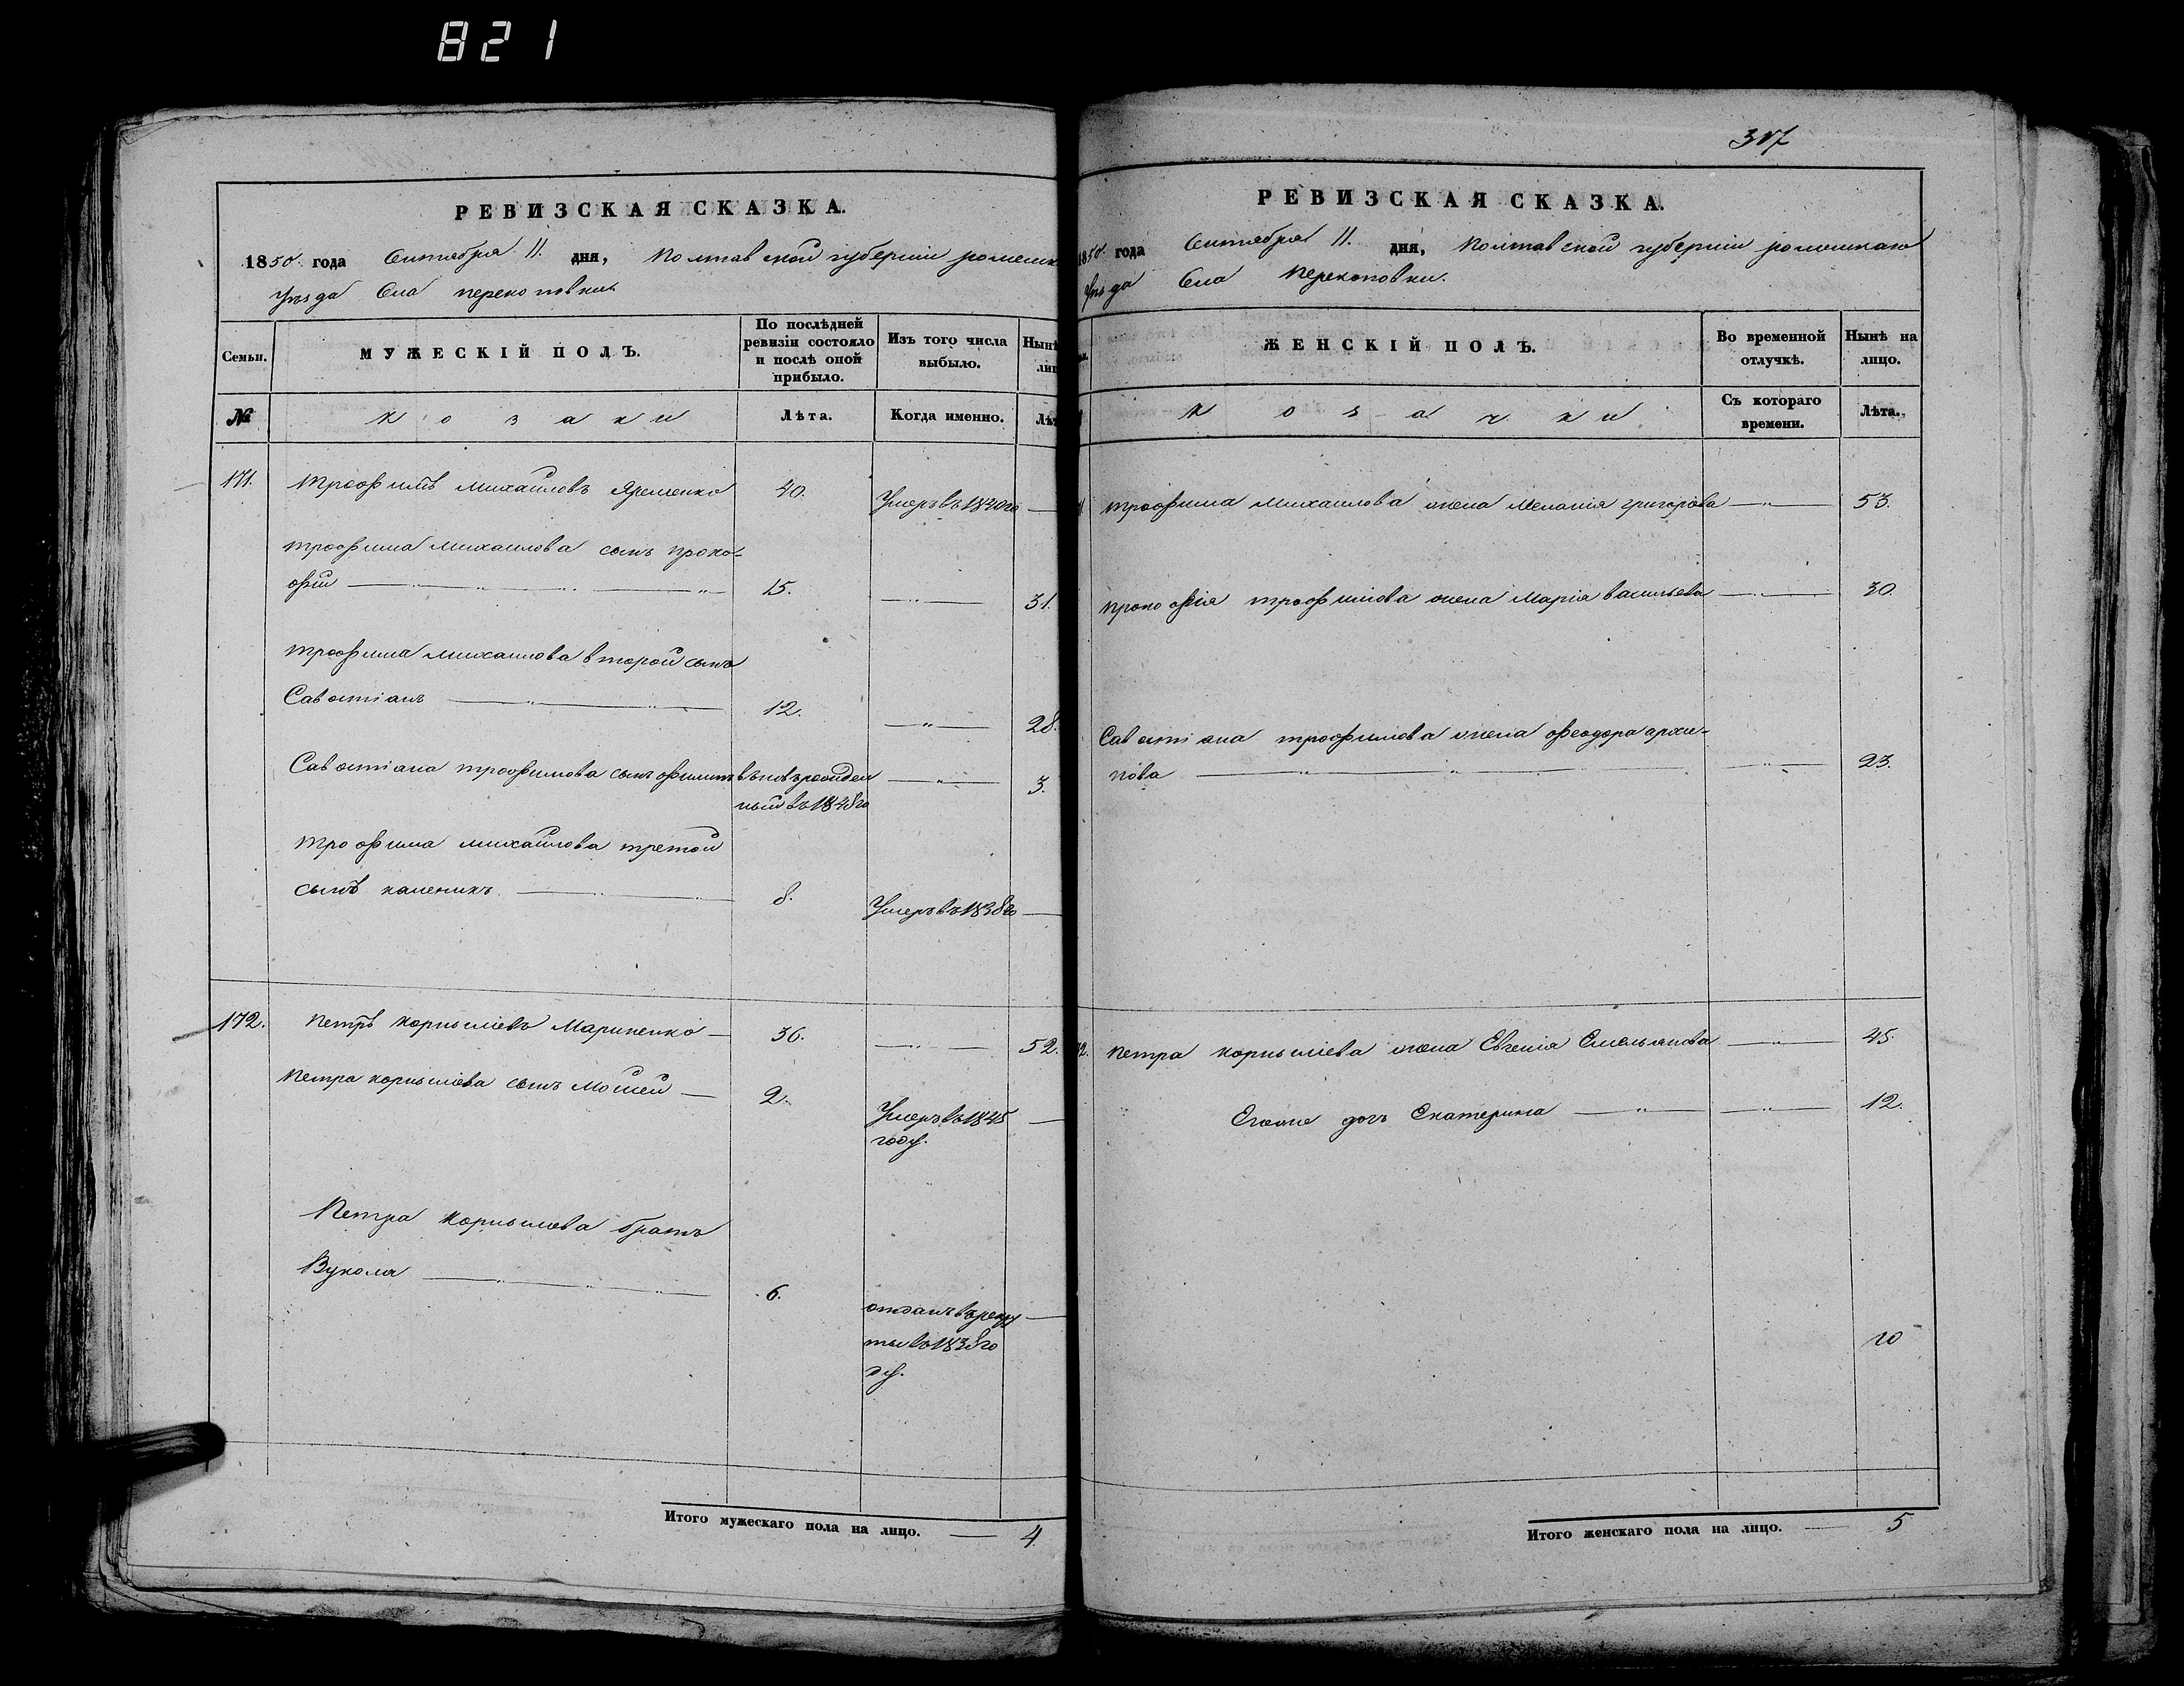 821
РЕВИЗСКАЯ СКАЗКА.
1850 года Сентября 11. дня, Полтавской губерніи роменск
Уѣзда Села перекоповки
Семьи.
МУЖЕСКІЙ ПОЛЪ.
По послѣдней ревизіи состояло и послѣ оной прибыло.
Изъ того числа выбыло.
Нынѣ
лиц
№
козаки
Лѣта.
Когда именно.
Лѣт
171. трофимъ михайловъ Яременко 40. Умеръ въ 1840го —
трофима михаилова сынъ проко-
фій 15. — 31.
трофима михаилова второй сынъ
Савостіанъ 12. — 28.
Савостіана трофимова сынъ филипъ вновьрожден — 3.
ный въ 1848го
трофима михайлова третой
сынъ каленикъ 8. Умеръ въ 1838го —
172. петръ корныліевъ Мариненко — 36. — 52.
петра корныліева сынъ Мойсей — 2. Умеръ въ 1845 —
году.
Петра корныліева братъ
Вукола 6. отданъ въ рекру —
ты въ 1838го
ду.
Итого мужескаго пола на лицо. — 4
307
РЕВИЗСКАЯ СКАЗКА.
1850 года Сентября 11. дня, Полтавской губерніи роменскаго
Уѣзда Села Перекоповки.
ЖЕНСКІЙ ПОЛЪ.
Во временной отлучкѣ.
Нынѣ на лицо.
козачки
Съ котораго времени.
Лѣта.
трофима Михаилова жена Меланія григорова — 53.
прокофія трофимова жена Марія васильева — 30.
Савостіана трофимова жена феодора архи-
пова — 23.
петра корныліева жена Евгенія Емельянова — 45.
Егоже дочь Екатерина — 12.
Итого женскаго пола на лицо. — 5